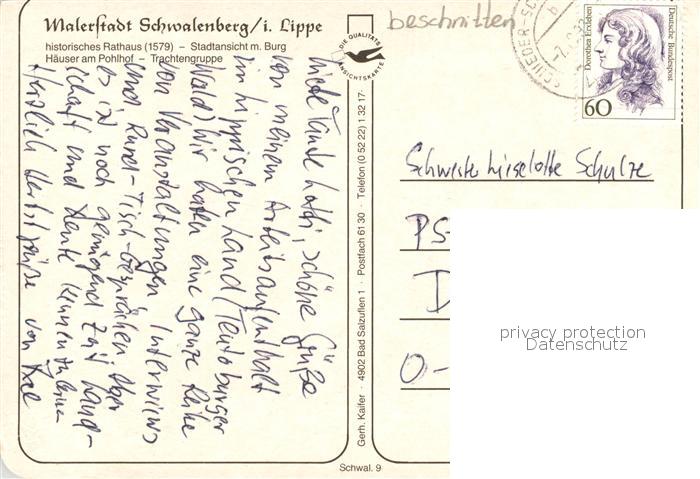 Malerstadt Schwalenberg/i. Lippe
historisches Rathaus (1579) – Stadtansicht m. Burg
Häuser am Pohlhof – Trachtengruppe
DIE QUALITÄTS
ANSICHTSKARTE
beschnitten
SCHIEDER-SC
Dorothea Erxleben
Deutsche Bundespost
60
Liebe Tante Lotti, schöne Grüße
von meinem Arbeitsaufenthalt
im Lippischen Land (Teutoburger
Wald) Wir haben eine ganze Reihe
von Veranstaltungen, Interviews
und Rund-Tisch-Gesprächen. Aber
es ist noch genügend Zeit Land-
schaft und Leute kennenzulernen
Herzlich Herbstgrüße von
Gerh. Kaifer · 4902 Bad Salzuflen 1 · Postfach 61 30 · Telefon (0 52 22) 1 32 17
Schwester Lieselotte Schulze
PS
D
O-
privacy protection
Datenschutz
Schwal. 9